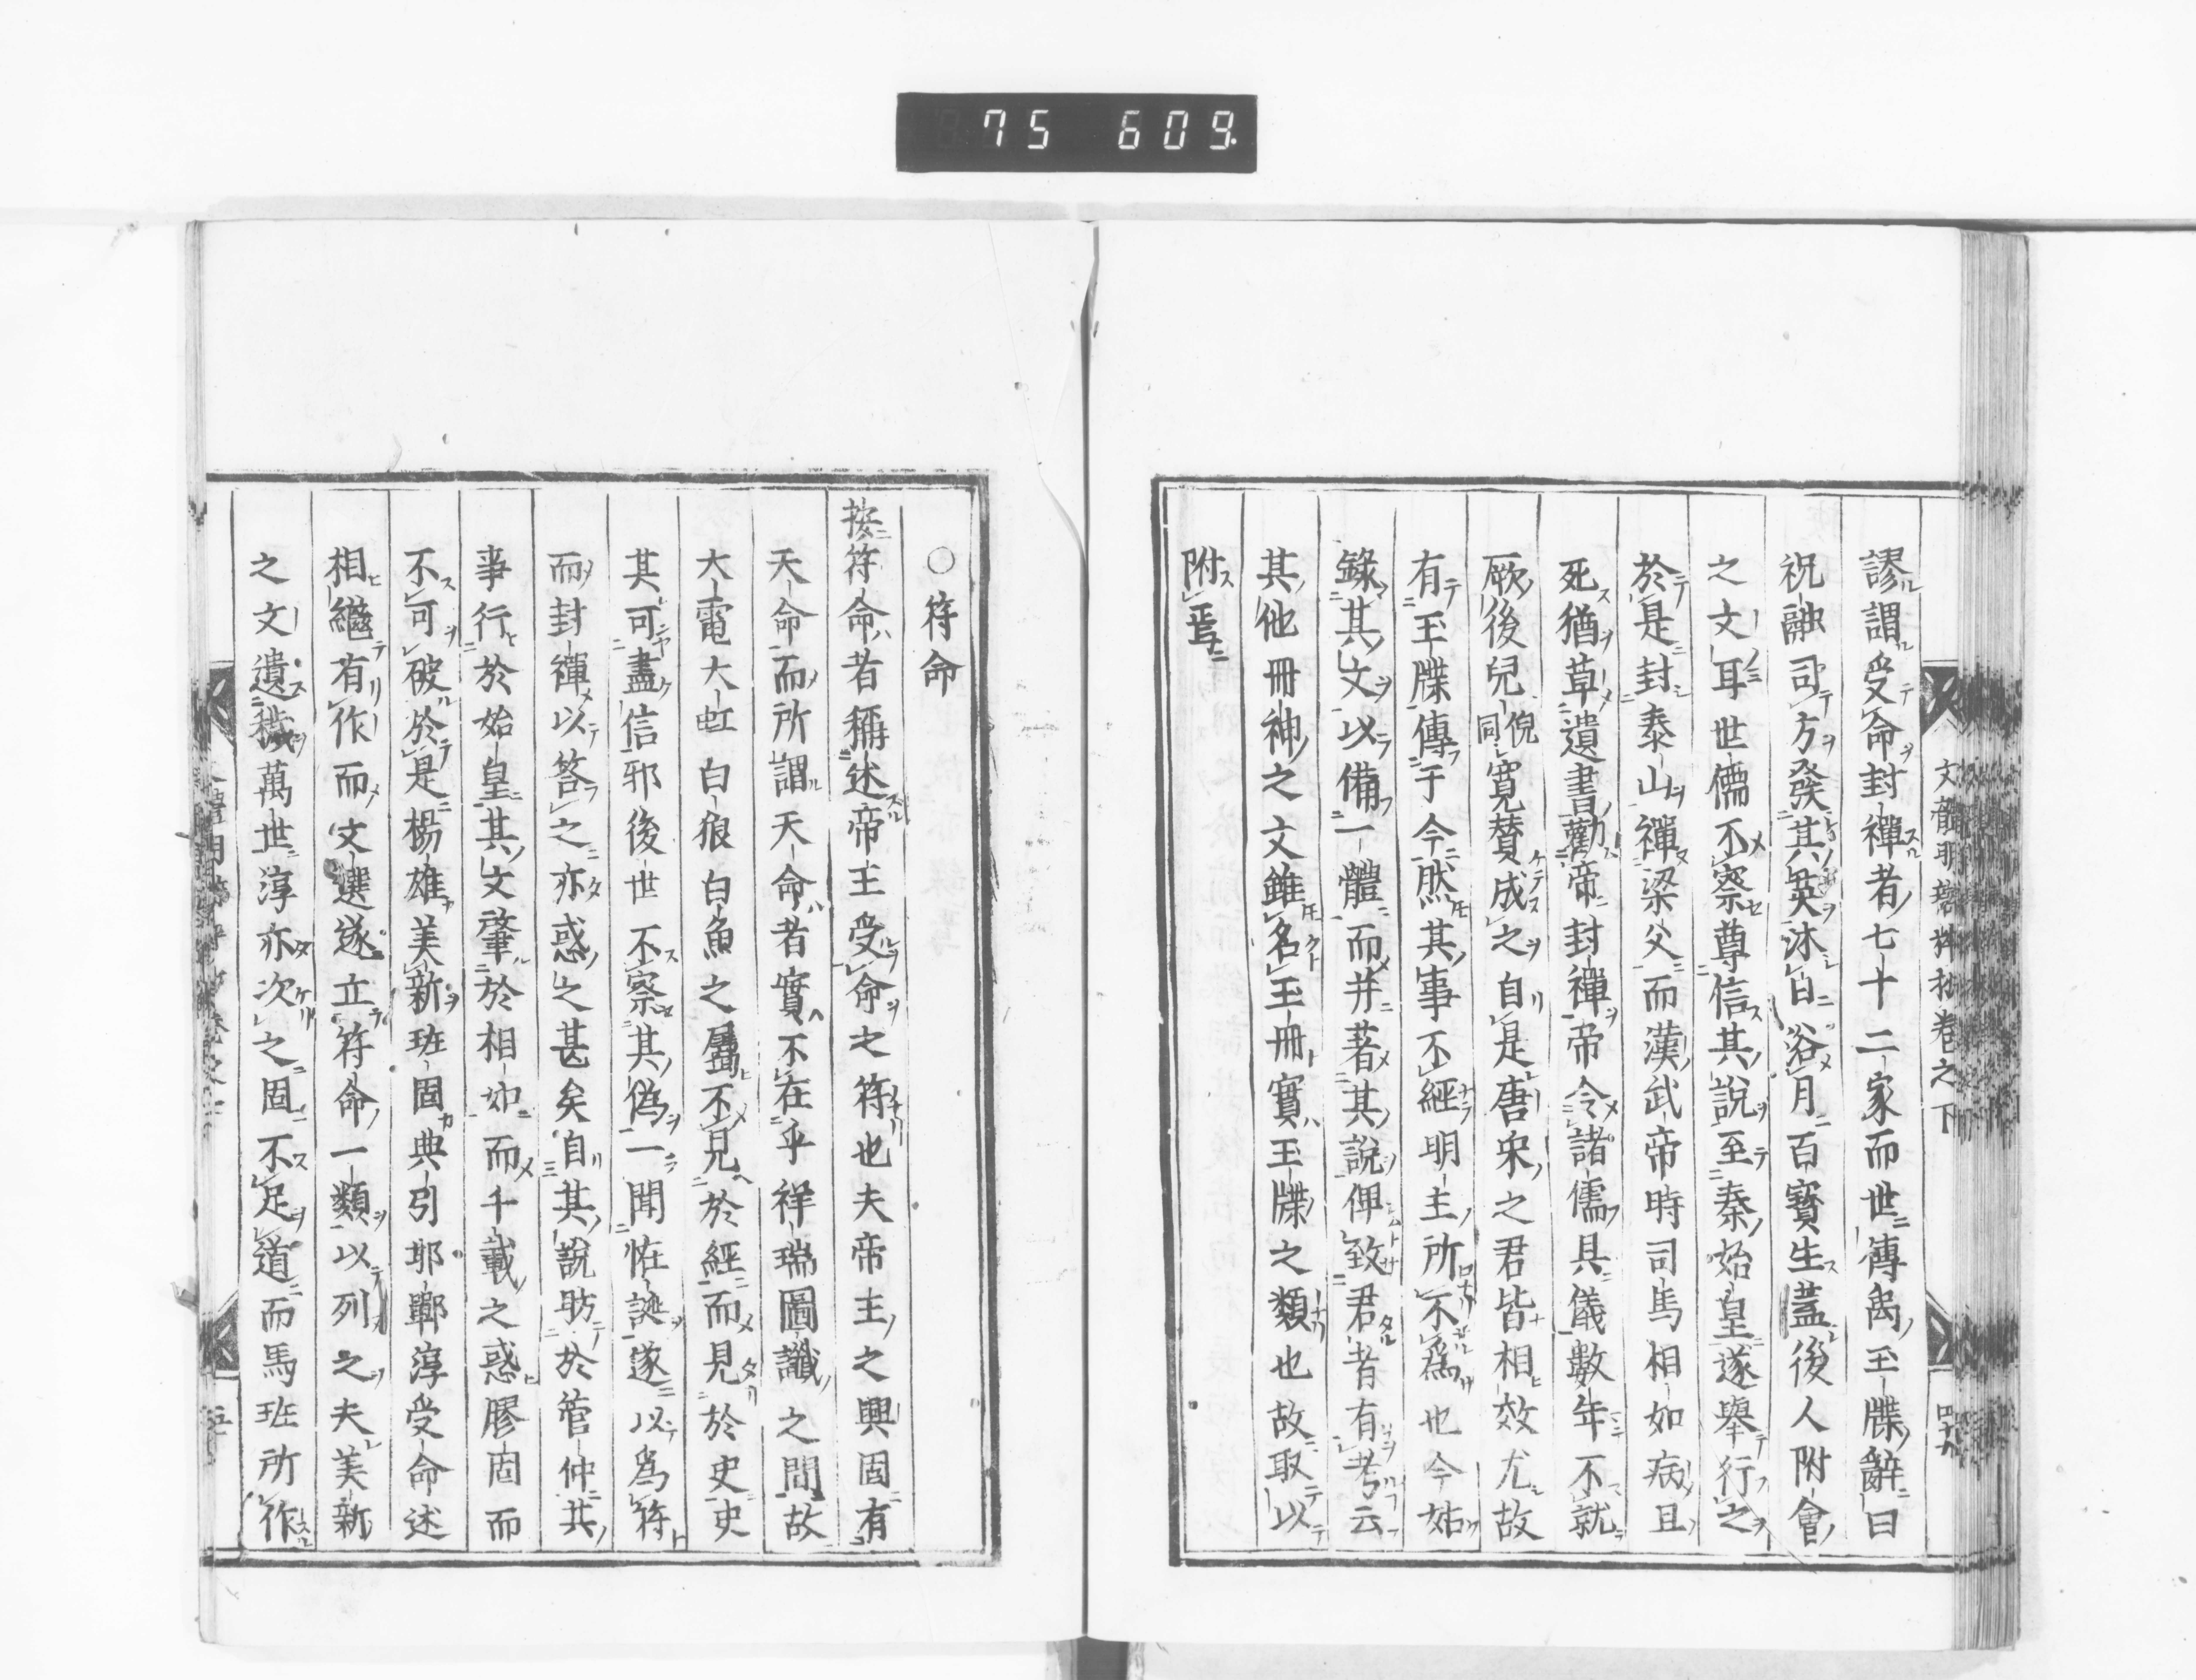 75 609.
謬謂受命封禪者七十二家而世傳禹玉牒辭曰
祝融司方發其英沐日浴月百寶生蓋後人附會
之文耳世儒不察尊信其說至秦始皇遂舉行之
於是封泰山禪梁父而漢武帝時司馬相如病且
死猶草遺書勸帝封禪帝令諸儒具儀數年不就
厥後兒倪同寬贊成之自是唐宋之君皆相效尤故
有玉牒傳于今然其事不經明主所不為也今姑
錄其文以備一體而并著其說俾致君者有考云
其他冊神之文雖名玉冊實玉牒之類也故取以
附焉
文體明辯粹抄卷之下
四十九
○符命
按符命者稱述帝王受命之符也夫帝王之興固有
天命而所謂天命者實不在乎祥瑞圖讖之間故
大電大虹白狼白魚之屬不見於經而見於史史
其可盡信邪後世不察其偽一聞怪誕遂以為符
而封禪以答之亦惑之甚矣自其說昉於管仲其
事行於始皇其文肇於相如而千載之惑膠固而
不可破於是楊雄美新班固典引邯鄲淳受命述
相繼有作而文選遂立符命一類以列之夫美新
之文遺穢萬世淳亦次之固不足道而馬班所作